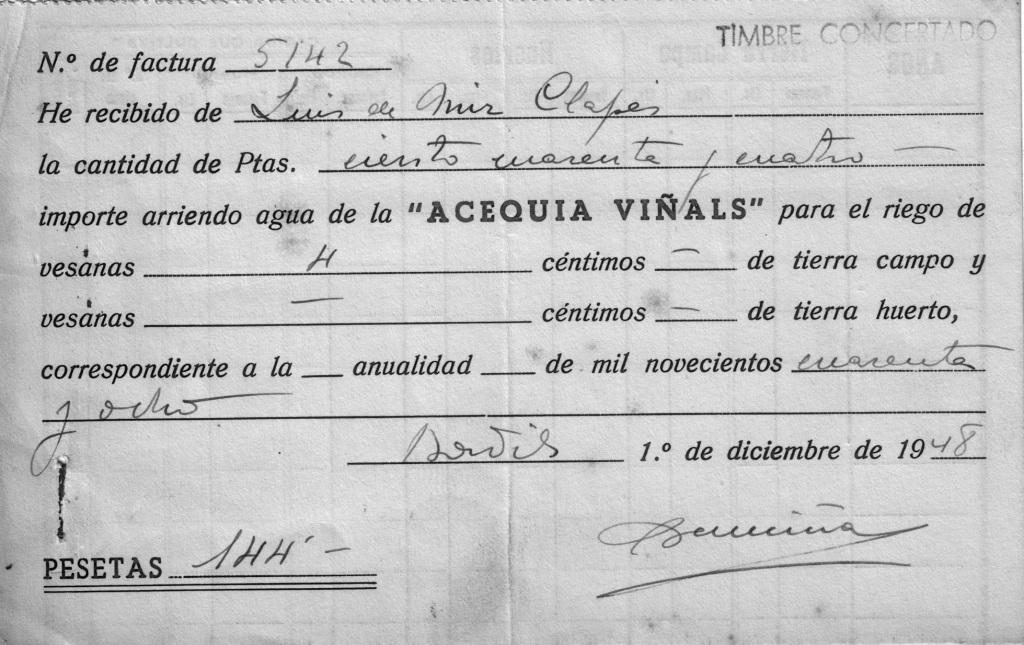 TIMBRE CONCERTADO
N.º de factura 5142
He recibido de Luis de Mir Clapés
la cantidad de Ptas. ciento cuarenta y cuatro —
importe arriendo agua de la "ACEQUIA VIÑALS" para el riego de
vesanas 4 céntimos — de tierra campo y
vesanas — céntimos — de tierra huerto,
correspondiente a la — anualidad — de mil novecientos cuarenta
y ocho
Bordils 1.º de diciembre de 1948
PESETAS 144'—